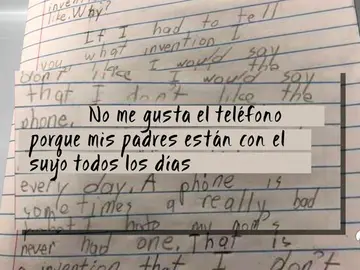 like. Why?
If I had to tell
you what invention I
don't like I would say
that I don't like the
phone.
No me gusta el teléfono
porque mis padres están con el
suyo todos los días
every day. A phone is
sometimes a really bad
my mom's
never had one. That is
a invention that I don't